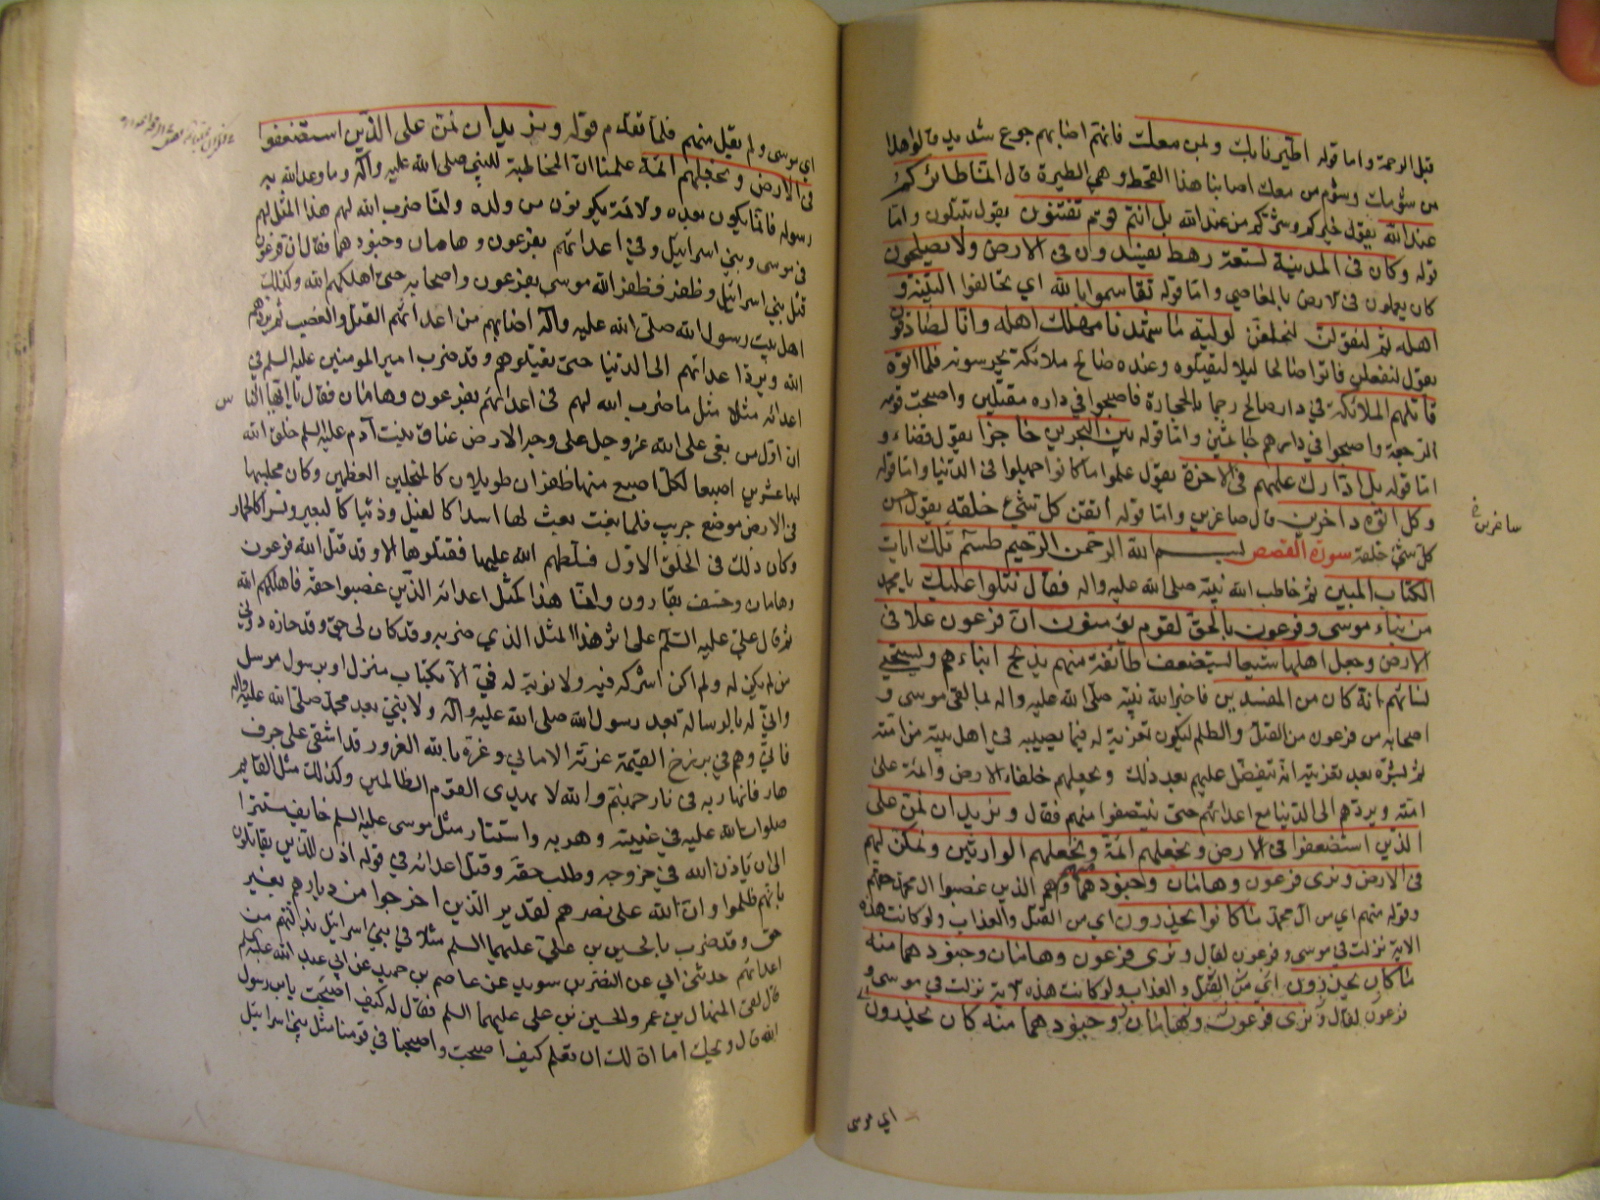 قبل الرحمة واما قوله اطيرنا بك ولمن معك فانهم اصابهم جوع شديد فقالوا هذا
من شؤمك وشوم من معك اصابنا هذا القحط وهي الطيرة قال انما طائركم
عند الله يقول خيركم وشركم من عند الله بل انتم قوم تفتنون يقول تبتلون واما
قوله وكان في المدينة تسعة رهط يفسدون في الارض ولا يصلحون
كان يعملون في الارض بالمعاصي واما قوله تقاسموا بالله اي تحالفوا لنبيتنه و
اهله ثم لنقولن لنحلفن لوليه ما شهدنا مهلك اهله وانا لصادقون
يقول لنفعلن فاتوا صالحا ليلا ليقتلوه وعنده صالح ملائكة يحرسونه فلما اتوه
قاتلهم الملائكة في دار صالح رجما بالحجارة فاصبحوا في داره مقتلين واصبحت قومه
الرجفة واصبحوا في دارهم جاثمين واما قوله بين البحرين حاجزا يقول قضاء و
اما قوله بل ادارك علمهم في الاخرة يقول علموا ما كانوا جهلوا في الدنيا واما قوله
وكل اتوه داخرين قال صاغرين واما قوله اتقن كل شيء خلقه يقول احسن
صاغرين
كل شيء خلقه سورة القصص بسم الله الرحمن الرحيم طسم تلك ايات
الكتاب المبين ثم خاطب الله نبيه صلى الله عليه واله فقال نتلوا عليك يا محمد
من نباء موسى وفرعون بالحق لقوم يؤمنون ان فرعون علا في
الارض وجعل اهلها شيعا يستضعف طائفة منهم يذبح ابناءهم ويستحيي
نسائهم انه كان من المفسدين فاخبر الله نبيه صلى الله عليه واله بما لقى موسى و
اصحابه من فرعون من القتل والظلم ليكون تعزية له فيما يصيبه في اهل بيته من امته
ثم بشره بعد تعزيته انه يتفضل عليهم بعد ذلك ويجعلهم خلفاء الارض وائمة على
امته ويردهم الى الدنيا مع اعدائهم حتى ينتصفوا منهم فقال ونريد ان نمن على
الذين استضعفوا في الارض ونجعلهم ائمة ونجعلهم الوارثين ونمكن لهم
في الارض ونرى فرعون وهامان وجنودهما وهم الذين غصبوا ال محمد حقهم
وقوله منهم اي من آل محمد ما كانوا يحذرون اي من القتل والعذاب ولو كانت هذه
الاية نزلت في موسى وفرعون لقال ونرى فرعون وهامان وجنودهما منه
ما كان يحذرون اي من القتل والعذاب ولو كانت هذه لاية نزلت في موسى و
فرعون لقال ونرى فرعون وهامان وجنودهما منه كان يحذرون
اي موسى
اي موسى ولم يقل منهم فلما تقدم قوله ونريد ان نمن على الذين استضعفوا
في الارض ونجعلهم ائمة علمنا ان المخاطبة للنبي صلى الله عليه وآله وما وعد الله به
رسوله فانما يكون بعده ولائمة يكونون من ولده وانما ضرب الله لهم هذا المثل لهم
في موسى وبني اسرائيل وفي اعدائهم بفرعون وهامان وجنودهما فقال ان فرعون
قتل بني اسرائيل وظفر فظفر الله موسى بفرعون واصحابه حتى اهلكهم الله وكذلك
اهل بيت رسول الله صلى الله عليه وآله اصابهم من اعدائهم القتل والغصب ثم يردهم
الله ويرد اعدائهم الى الدنيا حتى يقتلوهم وقد ضرب امير المؤمنين عليه السلم في
اعدائه مثلا مثل ما ضرب الله لهم في اعدائهم بفرعون وهامان فقال يا ايها الناس
ان اول من بغى على الله عز وجل على وجه الارض عناق بنت آدم عليه السلم خلق الله
لها عشرين اصبعا لكل اصبع منها ظفران طويلان كالمنجلين العظيمين وكان مجلسها
في الارض موضع جريب فلما بغت بعث لها اسدا كالفيل وذئبا كالبعير ونسرا كالحمار
وكان ذلك في الخلق الاول فسلطهم الله عليها فقتلوها الا وقد قتل الله فرعون
وهامان وخسف بقارون وانما هذا كمثل اعدائه الذين غصبوا حقه فاهلكهم الله
ثم قال علي عليه السلم على اثر هذا المثل الذي ضربه وقد كان لي حق وقد حازه دوني
من لم يكن له ولم اكن اشركه فيه ولا توبة له في الا بكتاب منزل او برسول مرسل
واني له بالرسالة بعد رسول الله صلى الله عليه وآله ولا نبي بعد محمد صلى الله عليه وآله
فاني وهم في برزخ القيمة عزته الاماني وغره بالله الغرور قد اشفى على جرف
هار فانهار به في نار جهنم والله لا يهدى القوم الظالمين وكذلك مثل القائم
صلوات الله عليه في غيبته وهربه واستتاره مثل موسى عليه السلم خايف مستترا
الى ان ياذن الله في خروجه وطلب حقه وقتل اعدائه في قوله اذن للذين يقاتلون
بانهم ظلموا وان الله على نصرهم لقدير الذين اخرجوا من ديارهم بغير
حق وقد ضرب بالحسين بن علي عليهما السلم مثلا في بني اسرائيل بذلتهم من
اعدائهم حدثني ابي عن النضر بن سويد عن عاصم بن حميد عن ابي عبد الله عليه السلم
قال لقى المنهال بن عمر والحسين بن علي عليهما السلم فقال له كيف اصبحت يا بن رسول
الله قال ويحك اما ان لك ان تعلم كيف اصبحت واصبحنا في قومنا مثل بني اسرائيل